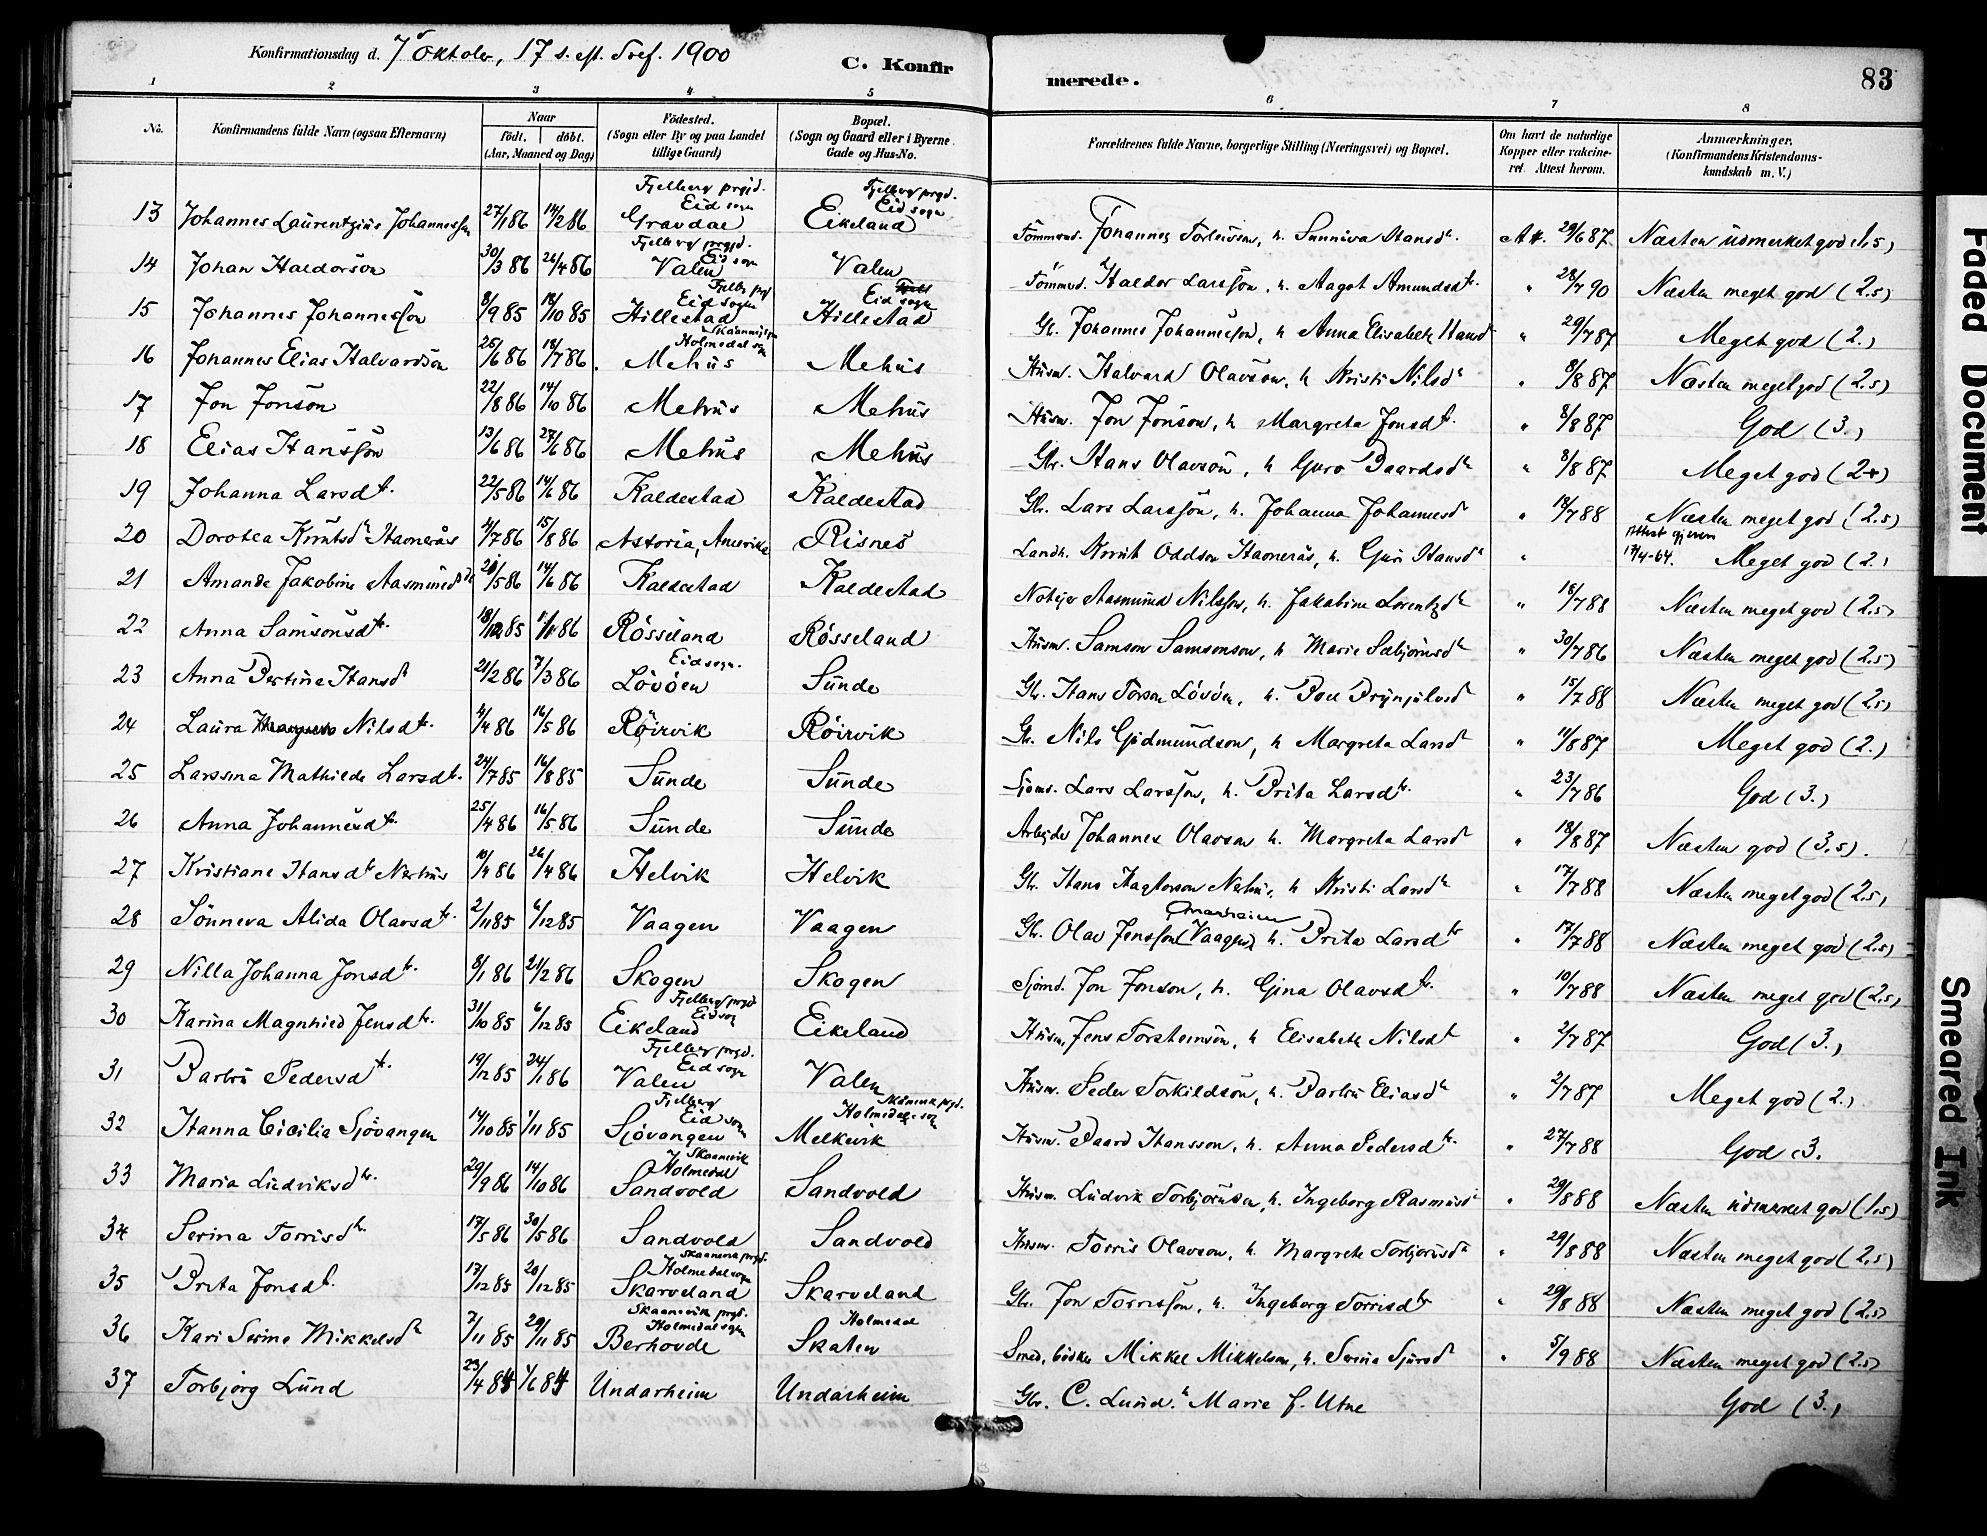 Konfirmationsdag d. 7 Oktober, 17 s. eft. Tref. 1900
C. Konfir merede. 83
1 2 3 4 5 6 7 8
No. Konfirmandens fulde Navn (ogsaa Efternavn) Naar født. døbt. (Aar, Maaned og Dag) Fødested. (Sogn eller By og paa Landet tillige Gaard) Bopæl. (Sogn og Gaard eller i Byerne Gade og Hus-No. Forældrenes fulde Navne, borgerlige Stilling (Næringsvei) og Bopæl. Om havt de naturlige Kopper eller vakcineret. Attest herom. Anmærkninger. (Konfirmandens Kristendomskundskab m. V.)
13 Johannes Laurentzius Johannesson 27/1 86 14/2 86 Fjelberg prgjd. Eid sogn Gravdal Fjelberg prgd. Eid sogn Eikeland Tømmerm. Johannes Torleivson, h. Sunniva Hansdtr. Att. 29/6 87 Næsten udmerket god (1,5)
14 Johan Haldorson 30/3 86 26/4 86 Fjelberg prgjd. Eid sogn Valen Valen Tømmerm. Haldor Larsson, h. Aagot Amundsdtr. " 28/7 90 Næsten meget god (2,5)
15 Johannes Johannesson 8/9 85 18/10 85 Eid sogn Hillestad Eid sogn Hillestad Gbr. Johannes Johannesson, h Anna Elisabeth Hansd " 29/7 87 Meget god (2.)
16 Johannes Elias Halvardson 25/6 86 18/7 86. Holmedal sogn Mehus Mehus Husm. Halvard Olavson, h Kristi Nilsdr " 9/8 87 Næsten meget god (2,5)
17 Jon Jonson 22/8 86 14/10 86 Mehus Mehus Husm. Jon Jonson, h Margreta Jonsdtr. " 8/8 87 God (3.)
18 Elias Hansson 13/6 86 27/6 86 Mehus Mehus Gbr. Hans Olavson, h Guro Baardsdr " 8/8 87 Meget god (2+)
19 Johanna Larsdtr. 22/5 86 14/6 86 Kaldestad Kaldestad Gbr. Lars Larsson, h. Johanna Johannesd " 18/7 88 Næsten meget god (2,5)
20 Dorotea Knutsdr Haaneraas 4/7 86 15/8 86 Astoria, Amerika Risnes Landh. Knut Oddson Haaneras, h. Guri Hansdr " Attest given 17/4-64. Meget god (2.)
21 Amanda Jakobine Aasmundsdr 20/5 86 14/6 86 Kaldestad Kaldestad Aasmund Nilsson, h. Jakobine Lorentzdr " 18/7 88 Næsten meget god (2,5)
22 Anna Samsonsdtr. 18/12 85 1/1 86 Rösseland Rösseland Husm. Samson Samsonson, h Marie Sæbjörnsdr " 30/7 86 Næsten meget god (2,5)
23 Anna Bertine Hansdr 21/2 86 7/3 86 Eid sogn. Lövöen Sunde Gbr. Hans Torson Lövöen, h. Boel Brynjulvsd " 15/7 88 Næsten meget god (2,5)
24 Laura Nilsdtr. 4/4 86 16/5 86 Röirvik Röirvik Gbr. Nils Gudmundson, h Margreta Larsd " 11/8 87 Meget god (2.)
25 Larssina Mathilde Larsdtr. 24/7 85 16/8 85 Sunde Sunde Sjöm. Lars Larsson, h. Brita Larsdtr. " 23/7 86 God (3.)
26 Anna Johannesdtr. 25/4 86 16/5 86 Sunde Sunde Arbejder Johannes Olavson h. Margreta Larsd " 18/8 87 Næsten god (3,5).
27 Kristiane Hansdtr Nerhus 10/4 86 26/4 86 Helvik Helvik Gbr. Hans Hagtorson Nerhus, h Kristi Larsdr " 17/7 88 Næsten meget god (2,5)
28 Sönneva Alida Olavsdtr. 2/11 85 6/12 85 Vaagen Vaagen Gbr. Olav Jensson (Vaagen) h. Brita Larsdtr " 17/7 88 Næsten meget god (2,5)
29 Nilla Johanna Jonsdtr. 8/1 86 21/2 86 Skogen Skogen Sjömd. Jon Jonson, h. Gina Olavsdtr. " 10/7 88 Næsten meget god (2,5)
30 Karina Magnhild Jensdtr. 31/10 85 6/12 85 Fjelberg prgd. Eid sogn Eikeland Eikeland Husm. Jens Torsteinson, h Elisabeth Nilsdtr " 2/7 87 God (3.)
31 Barbru Pedersdtr. 19/12 85 24/1 86 Fjelberg prgd. Eid sogn Valen Valen Husm. Peder Torkildson, h. Barbru Eliasdr " 2/7 87 Meget god (2.)
32 Hanna Cicilia Sjövangen 14/10 85 1/11 85 Fjelberg Eid sogn Sjövangen Skånevik prgd. Holmedal sogn Melkevik Husm. Baard Hansson, h. Anna Pedersdtr. " 27/7 88 God (3.
33 Maria Ludviksdtr. 29/9 86 14/10 86 Skaanevik Holmedal Sandvold Sandvold Husm. Ludvik Torbjörnsen, h. Ingeborg Rasmusd " 29/8 88 Næsten udmerket god (1,5)
34 Serina Torrisdr. 17/5 86 30/5 86 Sandvold Sandvold Husm. Torris Olavson, h. Margrete Torbjornsdr " 29/8 88 Næsten meget god (2,5)
35 Brita Jonsdtr. 17/12 85 20/12 85 Skaanevik prgd. Holmedal sogn Skarveland Skarveland Gbr. Jon Torrisson, h. Ingeborg Torrisdtr " 29/8 88 Næsten meget god (2,5)
36 Kari Serine Mikkelsdr 7/11 85 29/11 85 Skaanevik prgd. Holmedal sogn Berhovde Holmedal Skaten Smed, bödker Mikkel Mikkelson, h. Serina Sjursd " 5/9 88 Næsten meget god (2,5)
37 Torbjörg Lund 23/4 84 1/6 84 Undarheim Undarheim Gbr. C. Lund h Marie f. Utne God (3.)
Faded Document
Smeared Ink